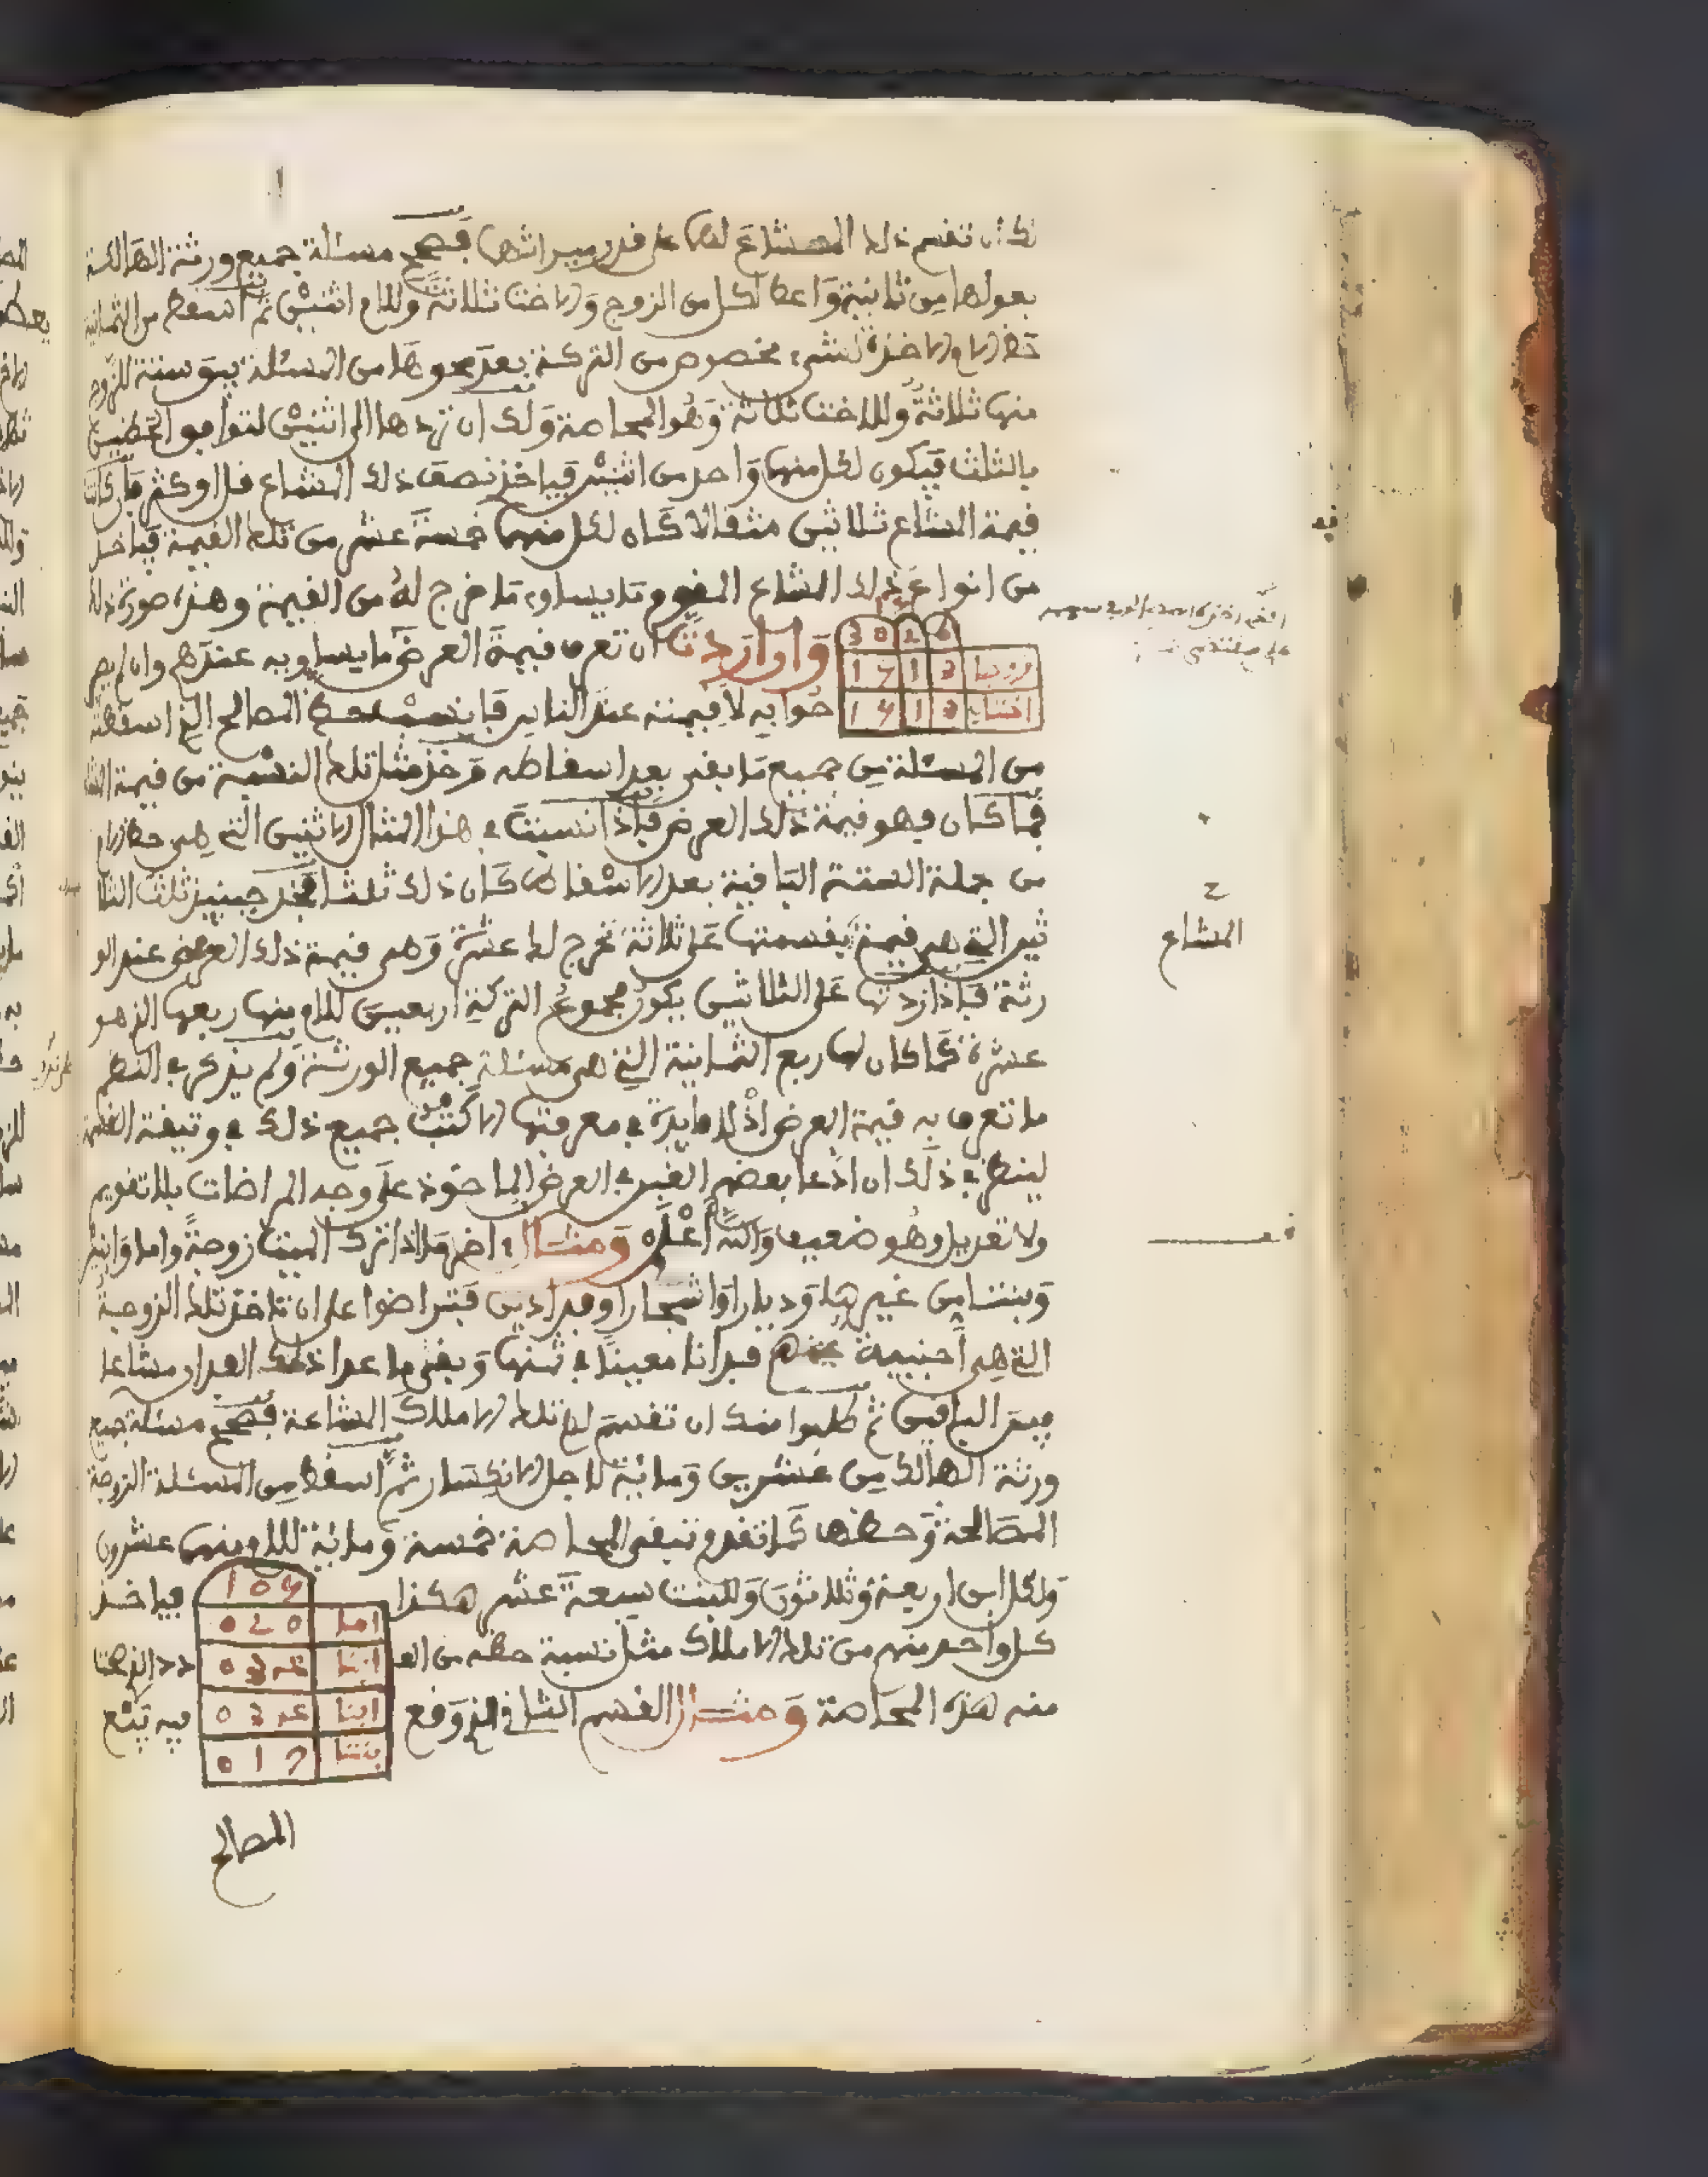 لك ان تقسم ذلك المشاع لهما على قدر ميراثهما فصحح مسئلة جميع ورثة الهالكة
بعولها من ثمانية واعط لكل من الزوج والاخت ثلاثة وللام اثنين ثم اسقط من الثمانية
حظ الام الاخذة لشيء مخصوص من التركة بعد محوها من المسئلة يبق ستة للزوج
منها ثلاثة وللاخت ثلاثة وهو المحاصة ولك ان تردها الى اثنين لتوافق الحظين
بالثلث فيكون لكل منهما واحد من اثنين فياخذ نصف ذلك المشاع قل او كثر فان كانت
قيمة المشاع ثلاثين مثقالا كان لكل منهما خمسة عشر من تلك القيمة فياخذ
من انواع ذلك المشاع المقوم ما يساوي ما خرج له من القيمة وهذه صورة ذلك
وان اردت ان تعرف قيمة العرض ما يساويه عندهم وان لم يصر
جوابه لا قيمته عند الناس فانسب حظ المصالح الذي اسقطته
من المسئلة من جميع ما بقي بعد اسقاطه وخذ مثل تلك النسبة من قيمة المشاع
فما كان فهو قيمة ذلك العرض فاذا نسبت في هذا المثال الاثنين التي هي حظ الام
من جملة الستة الباقية بعد الاسقاط كان ذلك ثلثا فخذ حينئذ ثلث الثلا
ثين التي هي قيمة بقسمتها على ثلاثة تخرج لك عشرة وهي قيمة ذلك العرض عند الو
رثة فاذا زدتها على الثلاثين يكون مجموع التركة اربعين للام منها ربعها الذي هو
عشرة كما كان لها ربع الثمانية التي هي مسئلة جميع الورثة ولم يذكر في النظم
ما تعرف به قيمة العرض اذ لا فايدة في معرفتها الا كتب جميع ذلك في وثيقة القسمة
لينظر في ذلك ان ادعا بعضهم الغبن في العرض الماخوذ على وجه المراضات بلا تقويم
ولا تعديل وهو ضعيف والله اعلم ومثال اخر ما اذا ترك الميت زوجة واما وابنين
وبنتا من غيرها وديارا واشجارا وفدادين فتراضوا على ان تاخذ تلك الزوجة
التي هي اجنبية عنهم فدانا معينا في ثمنها وبقي ما عدا ذلك الفدان مشاعا
بين الباقين ثم طلبوا منك ان تقسم لهم تلك الاملاك المشاعة فصحح مسئلة جميع
ورثة الهالك من عشرين ومائة لاجل الانكسار ثم اسقط من المسئلة الزوجة
المصالحة وحظها كما تقدم تبقى المحاصة خمسة ومائة للام منها عشرون
ولكل ابن اربعة وثلاثون وللبنت سبعة عشر هكذا فياخذ
كل واحد منهم من تلك الاملاك مثل نسبة حظه من العدد الذي هنا
منه هذه المحاصة ومثال القسم الثاني الذي وقع فيه بيع
المصالح
المشاع